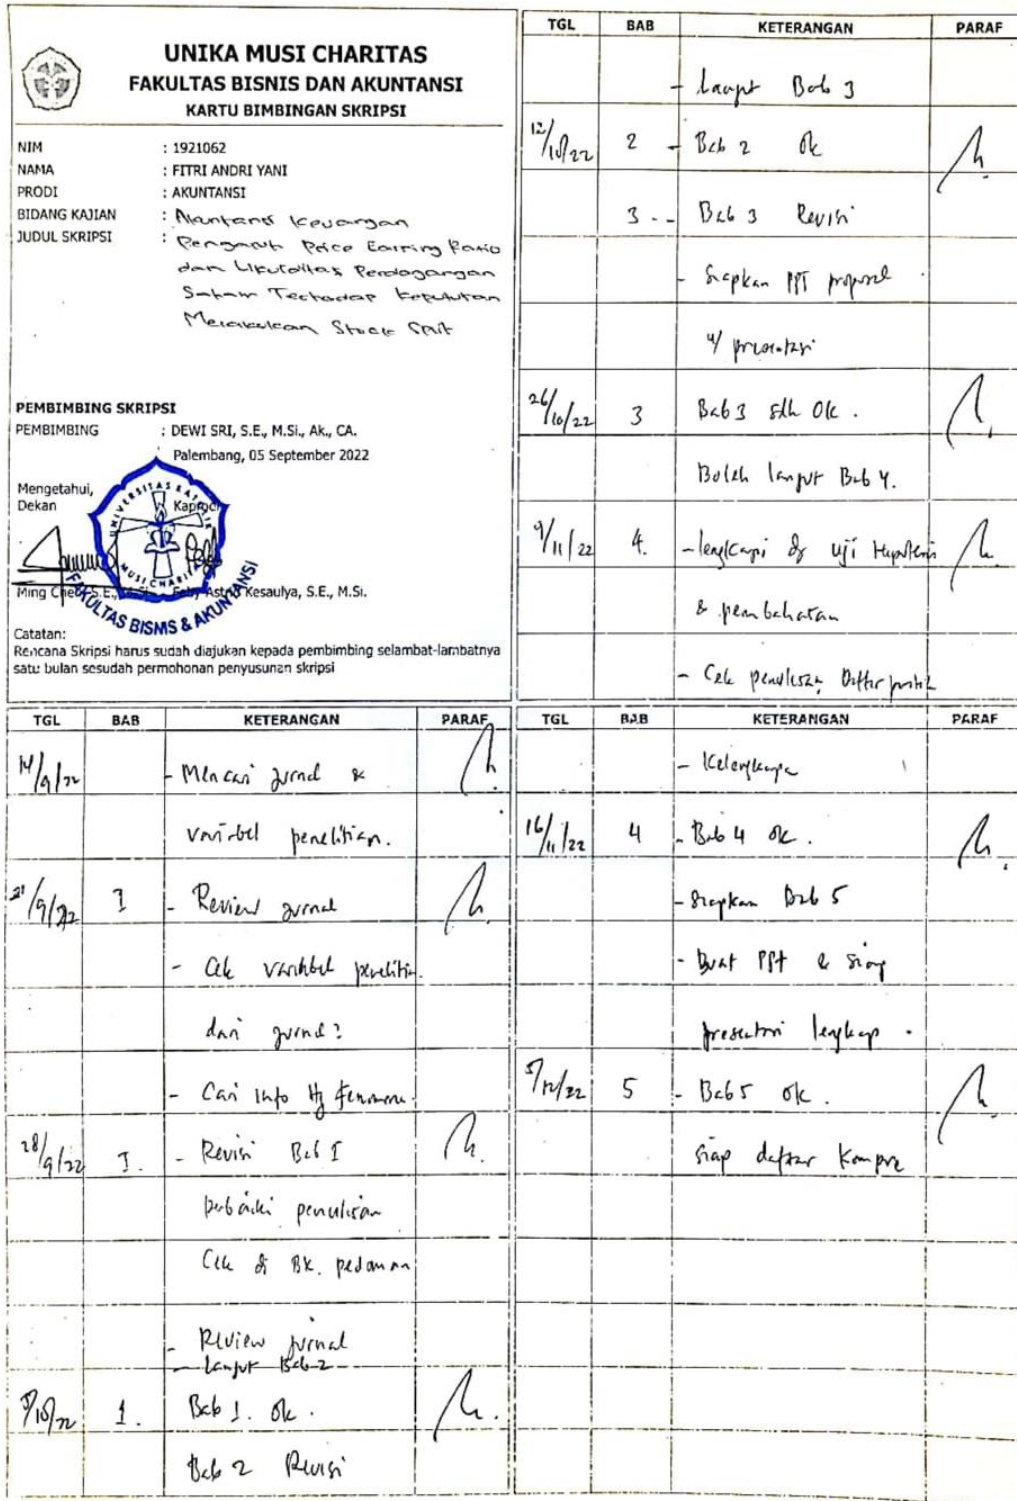 UNIKA MUSI CHARITAS
FAKULTAS BISNIS DAN AKUNTANSI
KARTU BIMBINGAN SKRIPSI
NIM : 1921062
NAMA : FITRI ANDRI YANI
PRODI : AKUNTANSI
BIDANG KAJIAN : Akuntansi Keuangan
JUDUL SKRIPSI : Pengaruh Price Earning Rasio
dan Likuiditas Perdagangan
Saham Terhadap Keputusan
Melakukan Stock Split
PEMBIMBING SKRIPSI
PEMBIMBING : DEWI SRI, S.E., M.Si., Ak., CA.
Palembang, 05 September 2022
Mengetahui,
Dekan Kaprodi
UNIVERSITAS KATOLIK
MUSI CHARITAS
FAKULTAS BISNIS & AKUNTANSI
Ming Chen, S.E., M.Si. Feby Astrid Kesaulya, S.E., M.Si.
Catatan:
Rencana Skripsi harus sudah diajukan kepada pembimbing selambat-lambatnya
satu bulan sesudah permohonan penyusunan skripsi
TGL BAB KETERANGAN PARAF
14/9/22 - Mencari jurnal &
variabel penelitian.
21/9/22 I - Review jurnal
- Cek variabel penelitian
dari jurnal?
- Cari info ttg fenomena.
28/9/22 I. - Revisi Bab I
perbaiki penulisan
Cek di BK. pedoman
- Review jurnal
- lanjut Bab 2
5/10/22 1. Bab 1. ok.
Bab 2 Revisi
TGL BAB KETERANGAN PARAF
- lanjut Bab 3
12/10/22 2 - Bab 2 ok
3 - Bab 3 Revisi
- Siapkan PPT proposal
u/ presentasi
26/10/22 3 Bab 3 sdh Ok.
Boleh lanjut Bab 4.
9/11/22 4. - lengkapi dg uji Hipotesis
& pembahasan
- Cek penulisan Daftar pustak
TGL BAB KETERANGAN PARAF
- Kelengkapan
16/11/22 4 - Bab 4 ok.
- Siapkan Bab 5
- Buat PPt & siap
presentasi lengkap.
5/12/22 5 - Bab 5 ok.
siap daftar Kompre